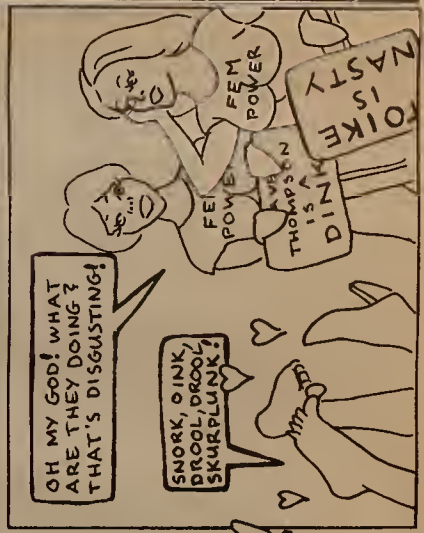 OH MY GOD! WHAT
ARE THEY DOING?
THAT'S DISGUSTING!
SNORK, OINK,
DROOL, DROOL,
SKURPLUNK!
FEM
POWER
FEM
POWER
THOMPSON
IS A
DINK
TOIKE
IS
NASTY